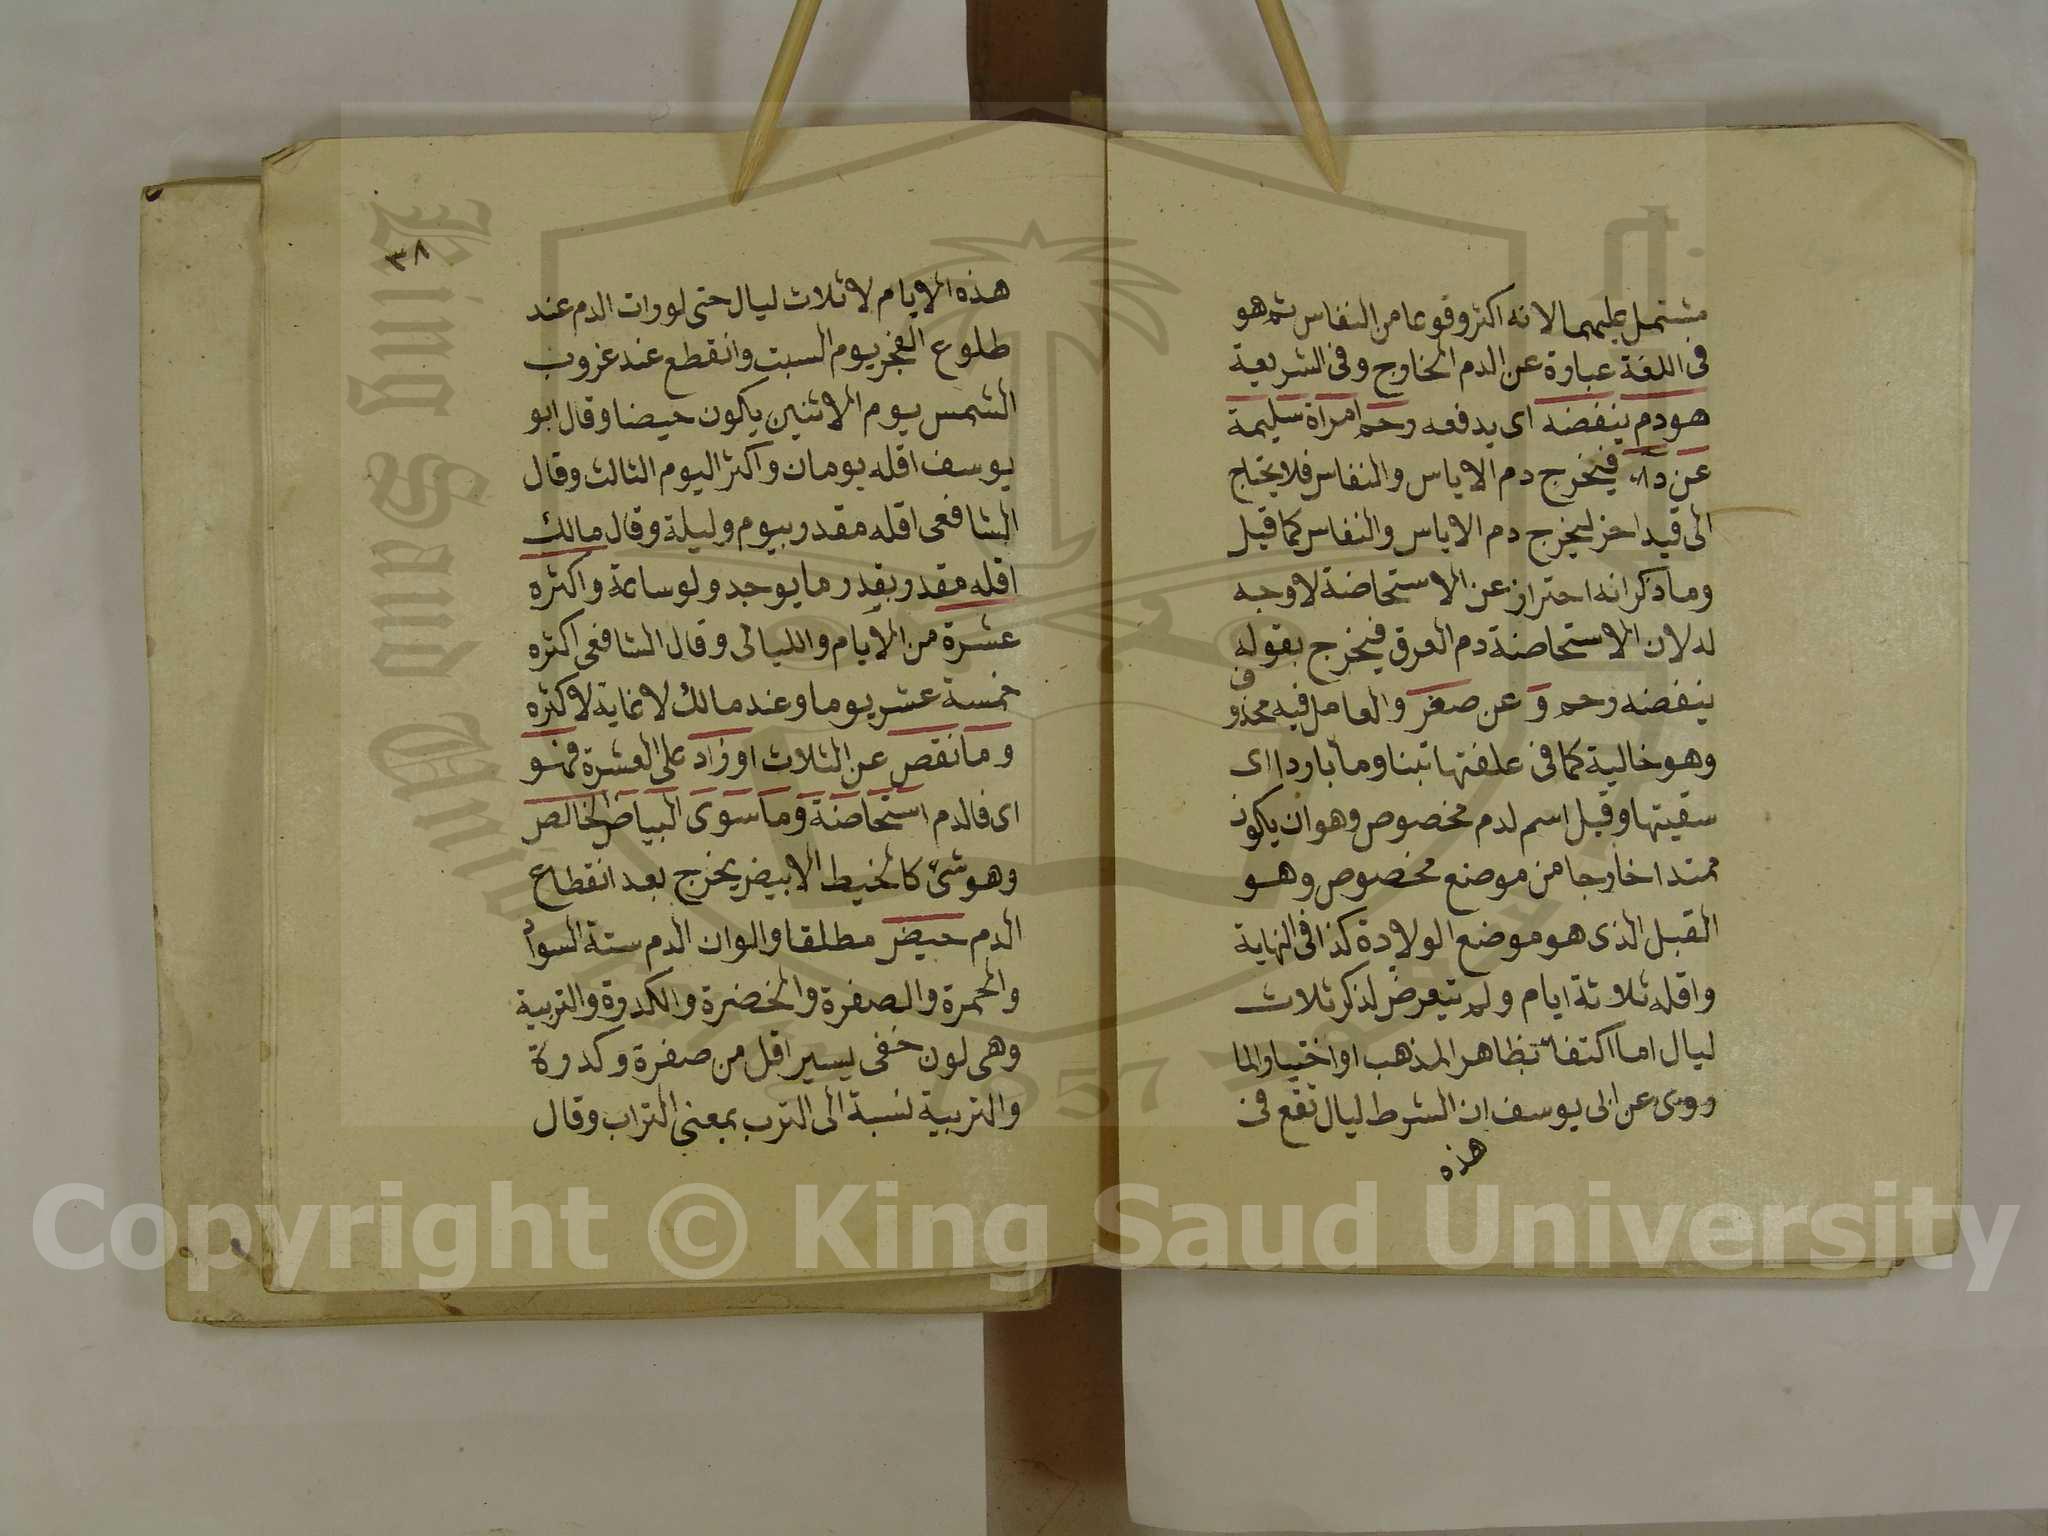 مشتمل عليهما لانه اكثر وقوعا من النفاس ثم هو
فى اللغة عبارة عن الدم الخارج وفى الشريعة
هو دم ينفضه اى يدفعه رحم امرأة سليمة
عن داء فيخرج دم الاياس والنفاس فلا يحتاج
الى قيد اخر ليخرج دم الاياس والنفاس كما قيل
وما ذكر انه احتراز عن الاستحاضة لا وجه
له لان الاستحاضة دم العرق فيخرج بقوله
ينفضه رحم و عن صغر والعامل فيه محذوف
وهو خالية كما فى علفتها تبنا وماء باردا اى
سقيتها وقيل اسم لدم مخصوص وهو ان يكون
ممتدا خارجا من موضع مخصوص وهو
القبل الذى هو موضع الولادة كذا فى النهاية
واقله ثلاثة ايام ولم يتعرض لذكر ثلاث
ليال اما اكتفاء بظاهر المذهب او اختيارا لما
روى عن ابى يوسف ان الشرط ليال تقع فى
هذه
٣٨
هذه الايام لا ثلاث ليال حتى لو رات الدم عند
طلوع الفجر يوم السبت وانقطع عند غروب
الشمس يوم الاثنين يكون حيضا وقال ابو
يوسف اقله يومان واكثر اليوم الثالث وقال
الشافعى اقله مقدر بيوم وليلة وقال مالك
اقله مقدر بقدر ما يوجد ولو ساعة واكثره
عشرة من الايام والليالى وقال الشافعى اكثره
خمسة عشر يوما وعند مالك لا غاية لاكثره
وما نقص عن الثلاث او زاد على العشرة فهو
اى فالدم استحاضة وما سوى البياض الخالص
وهو شئ كالخيط الابيض يخرج بعد انقطاع
الدم حيض مطلقا والوان الدم ستة السواد
والحمرة والصفرة والخضرة والكدرة والتربية
وهى لون خفى يسير اقل من صفرة وكدرة
والتربية نسبة الى الترب بمعنى التراب وقال
King Saud Uni
1957
Copyright © King Saud University